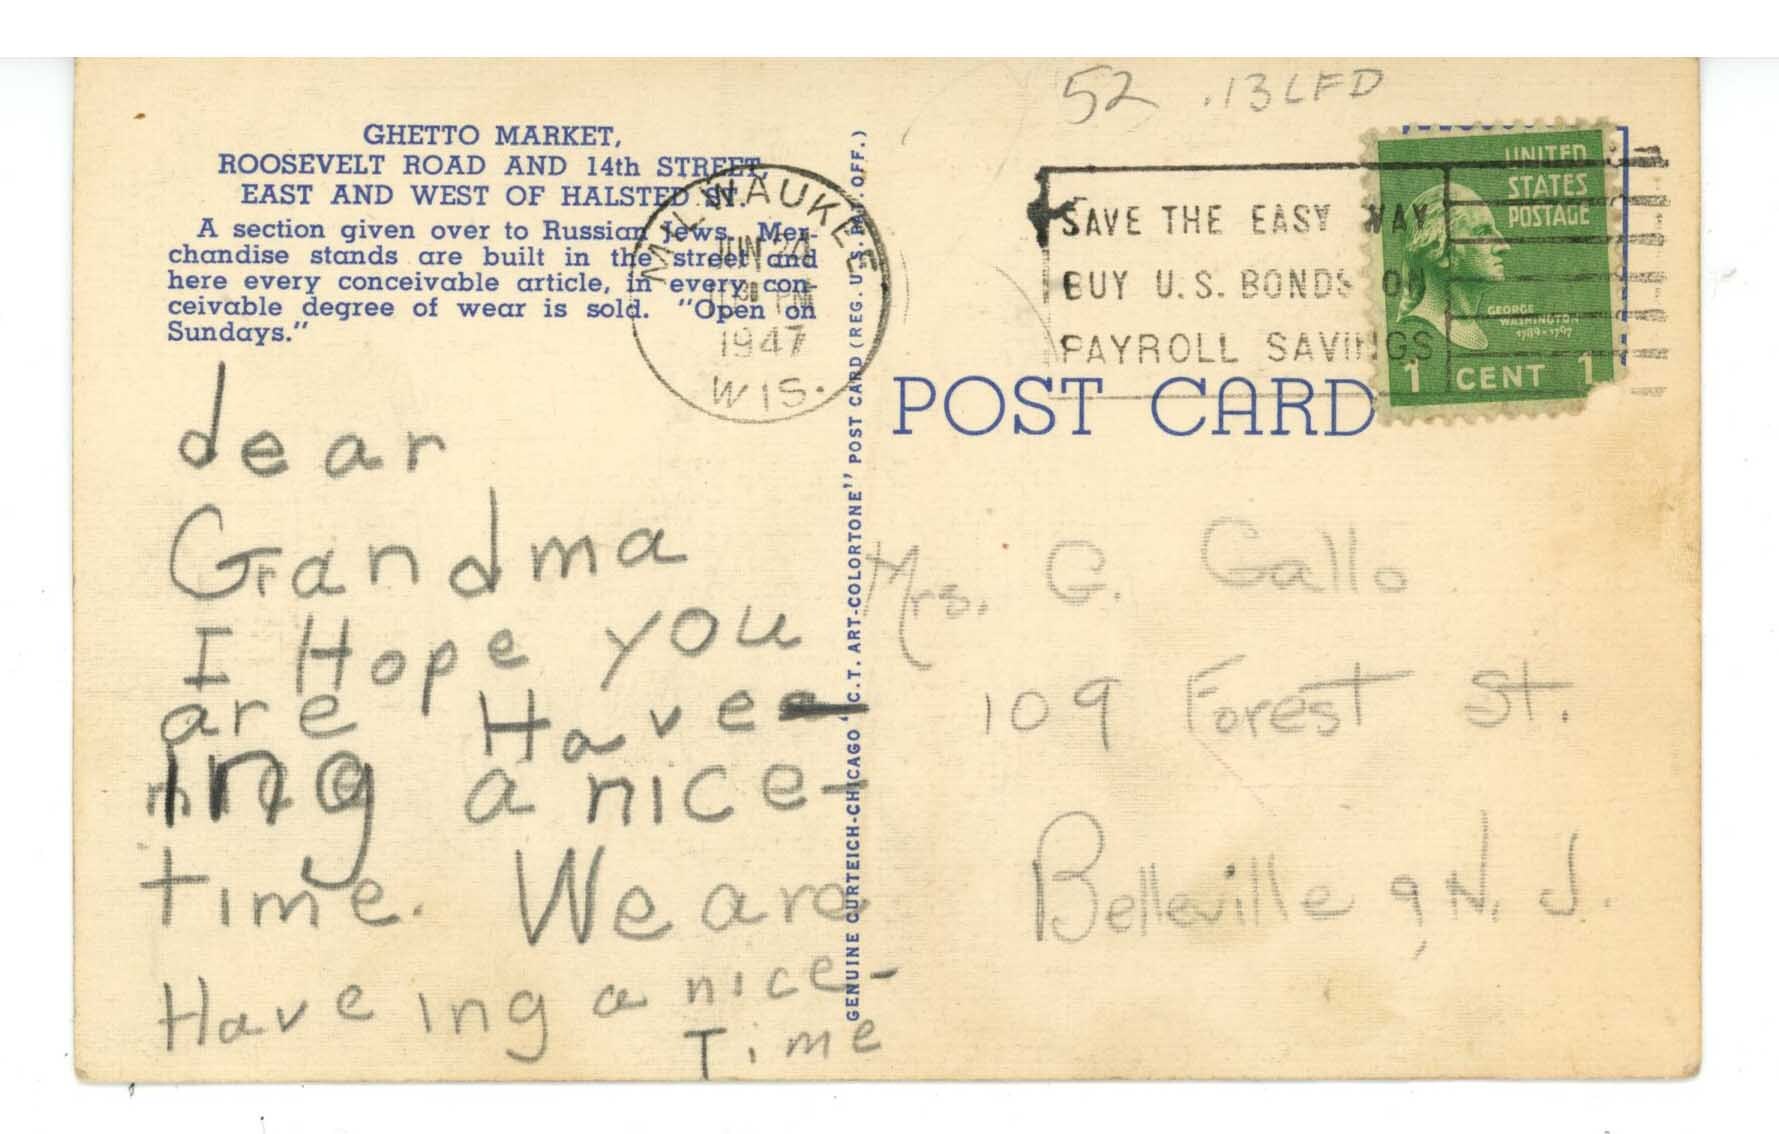 52 .13 LFD
GHETTO MARKET,
ROOSEVELT ROAD AND 14th STREET,
EAST AND WEST OF HALSTED ST.
A section given over to Russian Jews. Mer-
chandise stands are built in the street and
here every conceivable article, in every con-
ceivable degree of wear is sold. "Open on
Sundays."
MILWAUKEE
JUN 24
PM
1947
WIS.
SAVE THE EASY WAY
BUY U.S. BONDS ON
PAYROLL SAVINGS
UNITED
STATES
POSTAGE
GEORGE
WASHINGTON
1789-1797
1 CENT 1
POST CARD
GENUINE CURTEICH-CHICAGO "C.T. ART-COLORTONE" POST CARD (REG. U.S. PAT. OFF.)
dear
Grandma
I Hope you
are Have-
ing a nice-
time. We are
Have ing a nice-
Time
Mrs. G. Gallo
109 Forest St.
Belleville 9, N. J.